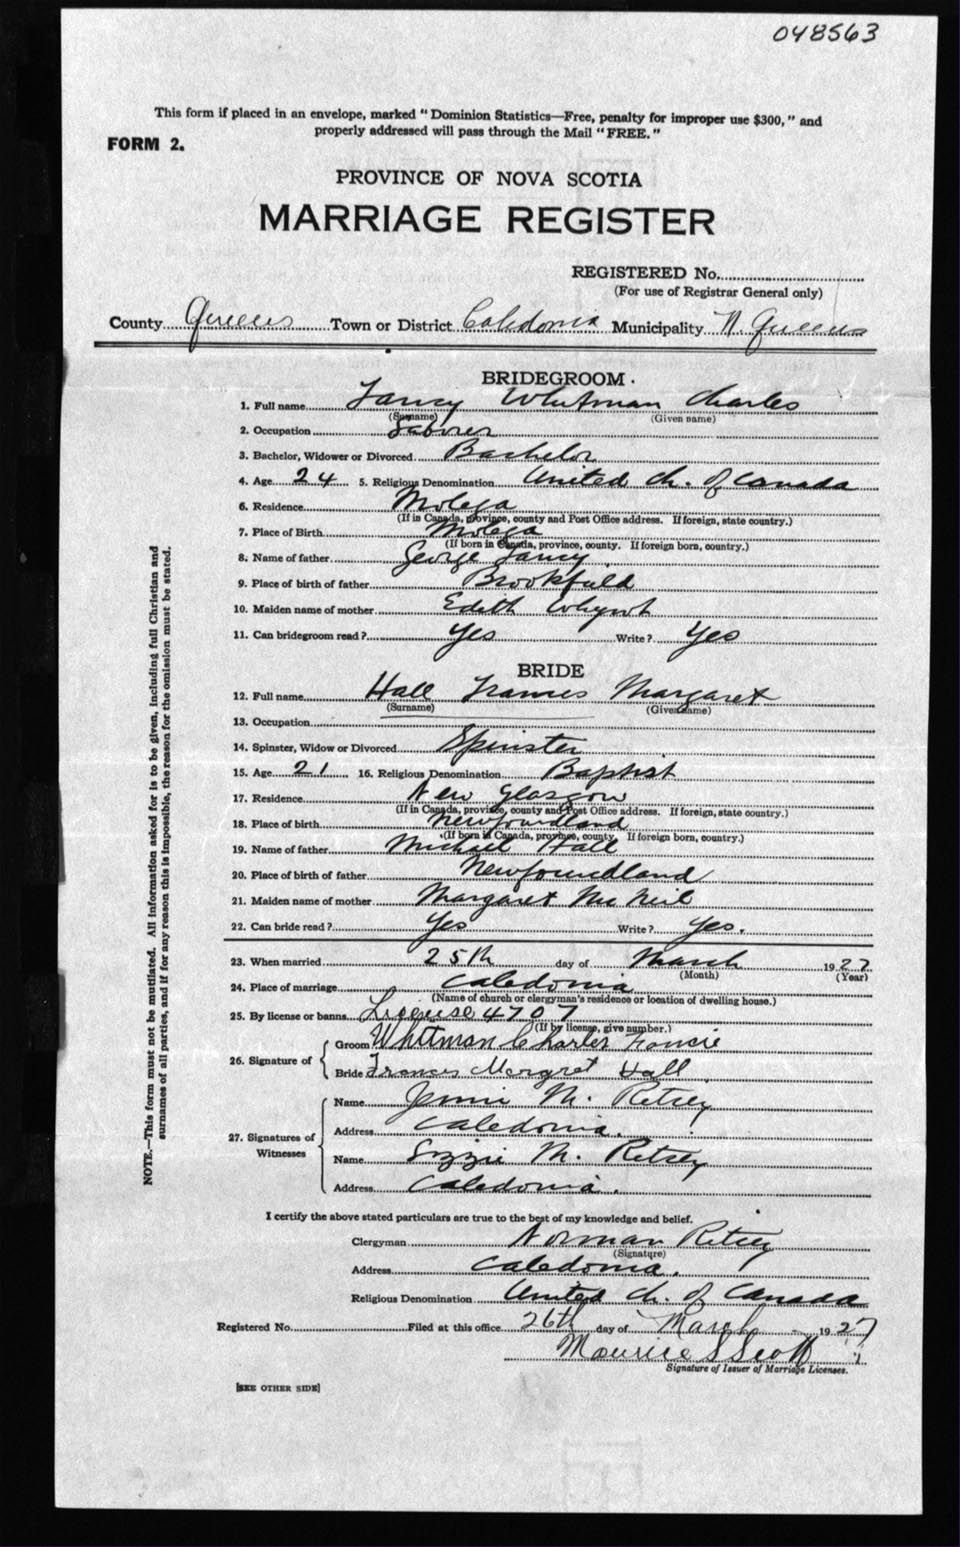 048563
This form if placed in an envelope, marked "Dominion Statistics—Free, penalty for improper use $300," and
properly addressed will pass through the Mail "FREE."
FORM 2.
PROVINCE OF NOVA SCOTIA
MARRIAGE REGISTER
REGISTERED No.
(For use of Registrar General only)
County Queens Town or District Caledonia Municipality N. Queens
BRIDEGROOM.
1. Full name Fancy Whitman Charles
(Surname) (Given name)
2. Occupation Laborer
3. Bachelor, Widower or Divorced Bachelor
4. Age 24 5. Religious Denomination United Ch. of Canada
6. Residence Molega
(If in Canada, province, county and Post Office address. If foreign, state country.)
7. Place of Birth Molega
(If born in Canada, province, county. If foreign born, country.)
8. Name of father George Fancy
9. Place of birth of father Brookfield
10. Maiden name of mother Edith Whynot
11. Can bridegroom read? Yes Write? Yes
BRIDE
12. Full name Hall Frances Margaret
(Surname) (Given name)
13. Occupation
14. Spinster, Widow or Divorced Spinster
15. Age 21 16. Religious Denomination Baptist
17. Residence New Glasgow
(If in Canada, province, county and Post Office address. If foreign, state country.)
18. Place of birth Newfoundland
(If born in Canada, province, county. If foreign born, country.)
19. Name of father Michael Hall
20. Place of birth of father Newfoundland
21. Maiden name of mother Margaret McNeil
22. Can bride read? Yes Write? Yes.
23. When married 25th day of March 1927
(Month) (Year)
24. Place of marriage Caledonia
(Name of church or clergyman's residence or location of dwelling house.)
25. By license or banns License 4707
(If by license, give number.)
26. Signature of Groom Whitman Charles
Bride Frances Margret Hall
27. Signatures of Witnesses
Name Jennie M.
Address Caledonia.
Name Lizzie M.
Address Caledonia.
I certify the above stated particulars are true to the best of my knowledge and belief.
Clergyman Norman
(Signature)
Address Caledonia.
Religious Denomination United Ch. of Canada
Registered No. Filed at this office 26th day of March 1927
Maurice S Scott
Signature of Issuer of Marriage Licenses.
[SEE OTHER SIDE]
NOTE.—This form must not be mutilated. All information asked for is to be given, including full Christian and
surnames of all parties, and if for any reason this is impossible, the reason for the omission must be stated.